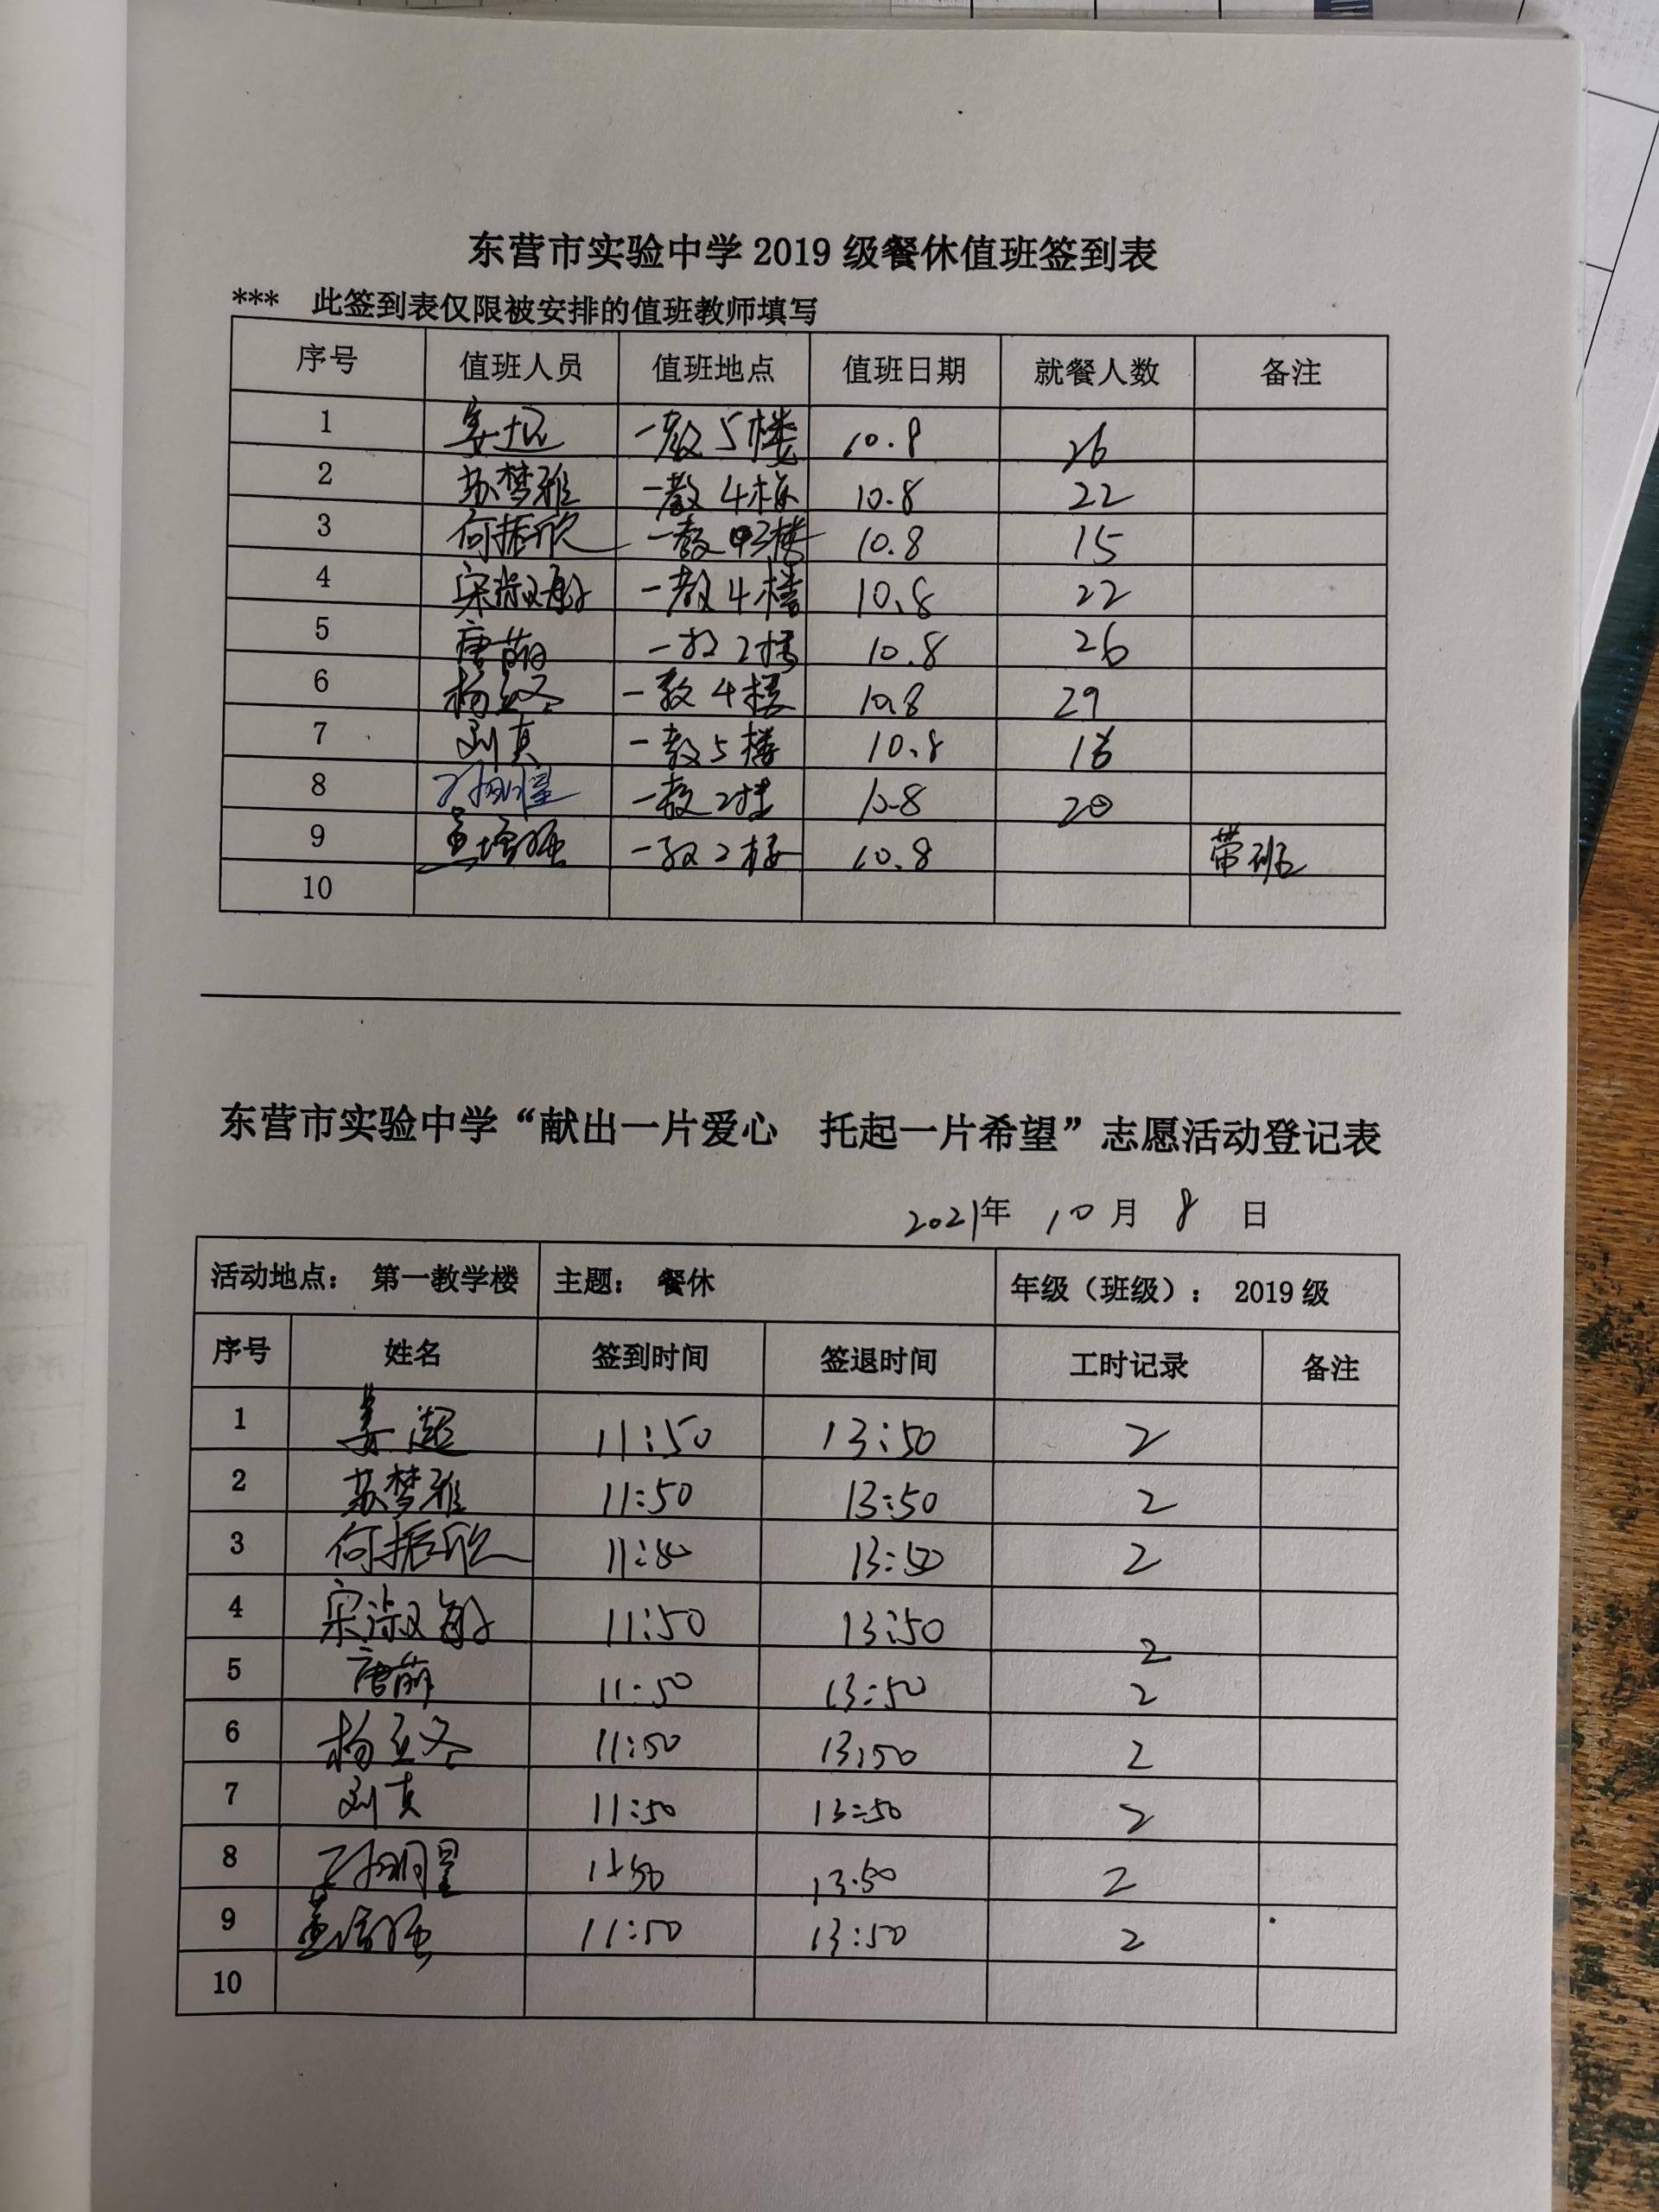 东营市实验中学 2019 级餐休值班签到表
*** 此签到表仅限被安排的值班教师填写
序号 值班人员 值班地点 值班日期 就餐人数 备注
1 一教5楼 10.8 26
2 苏梦雅 一教4楼 10.8 22
3 何振欣 一教3楼 10.8 15
4 宋淑敏 一教4楼 10.8 22
5 唐萌 一教2楼 10.8 26
6 杨立冬 一教4楼 10.8 29
7 刘真 一教5楼 10.8
8 一教2楼 10.8 20
9 一教2楼 10.8 带班
10
东营市实验中学“献出一片爱心 托起一片希望”志愿活动登记表
2021年 10月 8 日
活动地点: 第一教学楼 主题: 餐休 年级(班级): 2019 级
序号 姓名 签到时间 签退时间 工时记录 备注
1 11:50 13:50 2
2 苏梦雅 11:50 13:50 2
3 何振欣 11:50 13:50 2
4 宋淑敏 11:50 13:50 2
5 唐萌 11:50 13:50 2
6 杨立冬 11:50 13:50 2
7 刘真 11:50 13:50 2
8 11:50 13:50 2
9 11:50 13:50 2
10